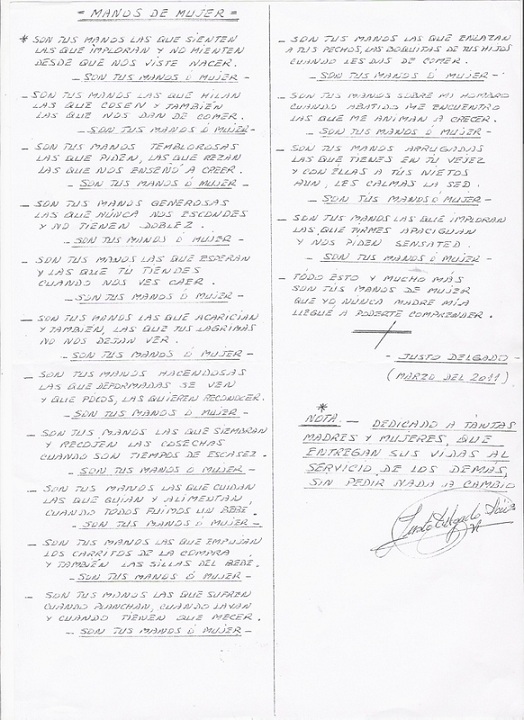 = MANOS DE MUJER =
* SON TUS MANOS LAS QUE SIENTEN
LAS QUE IMPLORAN Y NO MIENTEN
DESDE QUE NOS VISTE NACER.
- SON TUS MANOS Ó MUJER -
- SON TUS MANOS LAS QUE HILAN
LAS QUE COSEN Y TAMBIÉN
LAS QUE NOS DAN DE COMER.
- SON TUS MANOS Ó MUJER -
- SON TUS MANOS TEMBLOROSAS
LAS QUE PIDEN, LAS QUE REZAN
LAS QUE NOS ENSEÑÓ A CREER.
- SON TUS MANOS Ó MUJER -
- SON TUS MANOS GENEROSAS
LAS QUE NÚNCA NOS ESCONDES
Y NO TIENEN DOBLEZ.
- SON TUS MANOS Ó MUJER -
- SON TUS MANOS LAS QUE ESPERAN
Y LAS QUE TU TIENDES
CUANDO NOS VES CAER.
- SON TUS MANOS Ó MUJER -
- SON TUS MANOS LAS QUE ACARICIAN
Y TAMBIÉN, LAS QUE TUS LÁGRIMAS
NO NOS DEJAN VER.
- SON TUS MANOS Ó MUJER -
- SON TUS MANOS HACENDOSAS
LAS QUE DEFORMADAS SE VEN
Y QUE POCOS, LAS QUIEREN RECONOCER.
- SON TUS MANOS Ó MUJER -
- SON TUS MANOS LAS QUE SIEMBRAN
Y RECOJEN LAS COSECHAS
CUANDO SON TIEMPOS DE ESCASEZ.
- SON TUS MANOS Ó MUJER -
- SON TUS MANOS LAS QUE CUIDAN
LAS QUE GUIAN Y ALIMENTAN,
CUANDO TODOS FUIMOS UN BEBÉ.
- SON TUS MANOS Ó MUJER -
- SON TUS MANOS LAS QUE EMPUJAN
LOS CARRITOS DE LA COMPRA
Y TAMBIÉN LAS SILLAS DEL BEBÉ.
- SON TUS MANOS Ó MUJER -
- SON TUS MANOS LAS QUE SUFREN
CUANDO PLANCHAN, CUANDO LAVAN
Y CUANDO TIENEN QUE MECER.
- SON TUS MANOS Ó MUJER -
- SON TUS MANOS LAS QUE ENLAZAN
A TUS PECHOS, LAS BOQUITAS DE TUS HIJOS
CUANDO LES DAS DE COMER.
- SON TUS MANOS Ó MUJER -
- SON TUS MANOS SOBRE MI HOMBRO
CUANDO ABATIDO ME ENCUENTRO
LAS QUE ME ANIMAN A CRECER.
- SON TUS MANOS Ó MUJER -
- SON TUS MANOS ARRUGADAS
LAS QUE TIENES EN TU VEJEZ
Y CON ELLAS A TUS NIETOS
AUN, LES CALMAS LA SED.
- SON TUS MANOS Ó MUJER -
- SON TUS MANOS LAS QUE IMPLORAN
LAS QUE FIRMES APACIGUAN
Y NOS PIDEN SENSATED.
- SON TUS MANOS Ó MUJER -
- TODO ESTO Y MUCHO MÁS
SON TUS MANOS DE MUJER
QUE YO NUNCA MADRE MÍA
LLEGUÉ A PODERTE COMPRENDER.
- JUSTO DELGADO -
(MARZO DEL 2011)
*
NOTA - DEDICADO A TANTAS
MADRES Y MUJERES, QUE
ENTREGAN SUS VIDAS AL
SERVICIO DE LOS DEMÁS,
SIN PEDIR NADA A CAMBIO
Justo Delgado